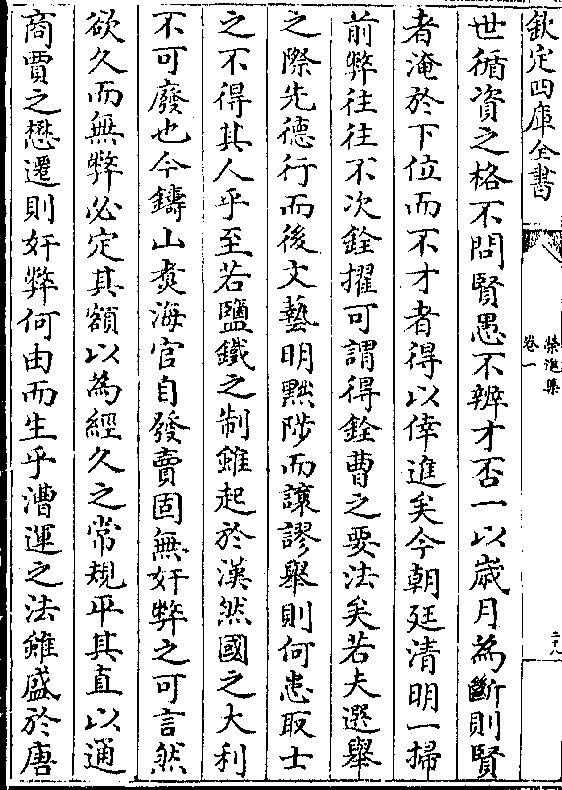 欽定四庫全書
榮進集
卷一
二十八
世循資之格不問賢愚不辨才否一以歲月為斷則賢
者淹於下位而不才者得以倖進矣今朝廷清明一掃
前弊往往不次銓擢可謂得銓曹之要法矣若夫選舉
之際先德行而後文藝明黜陟而讓謬舉則何患取士
之不得其人乎至若鹽鐵之制雖起於漢然國之大利
不可廢也今鑄山煑海官自發賣固無奸弊之可言然
欲久而無弊必定其額以為經久之常規平其直以通
商賈之懋遷則奸弊何由而生乎漕運之法雖盛於唐